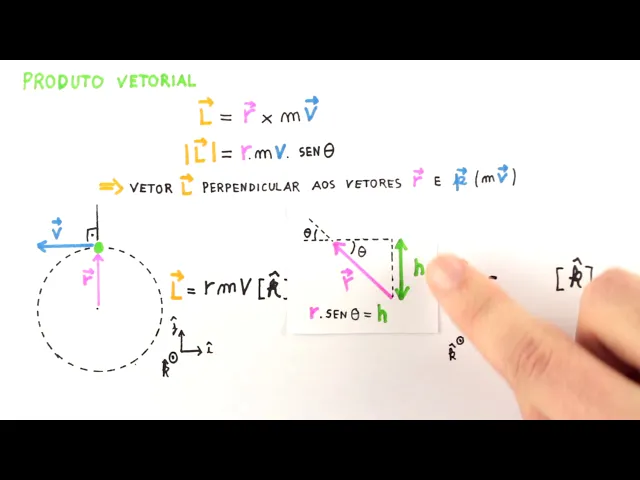 PRODUTO VETORIAL
L⃗ = r⃗ × m v⃗
|L⃗| = r.mv. SEN θ
⇒ VETOR L⃗ PERPENDICULAR AOS VETORES r⃗ E p⃗ (m v⃗)
v⃗
r⃗
L⃗ = r m v [k̂]
ĵ
î
k̂
θ
θ
r⃗
h
r. SEN θ = h
[k̂]
k̂